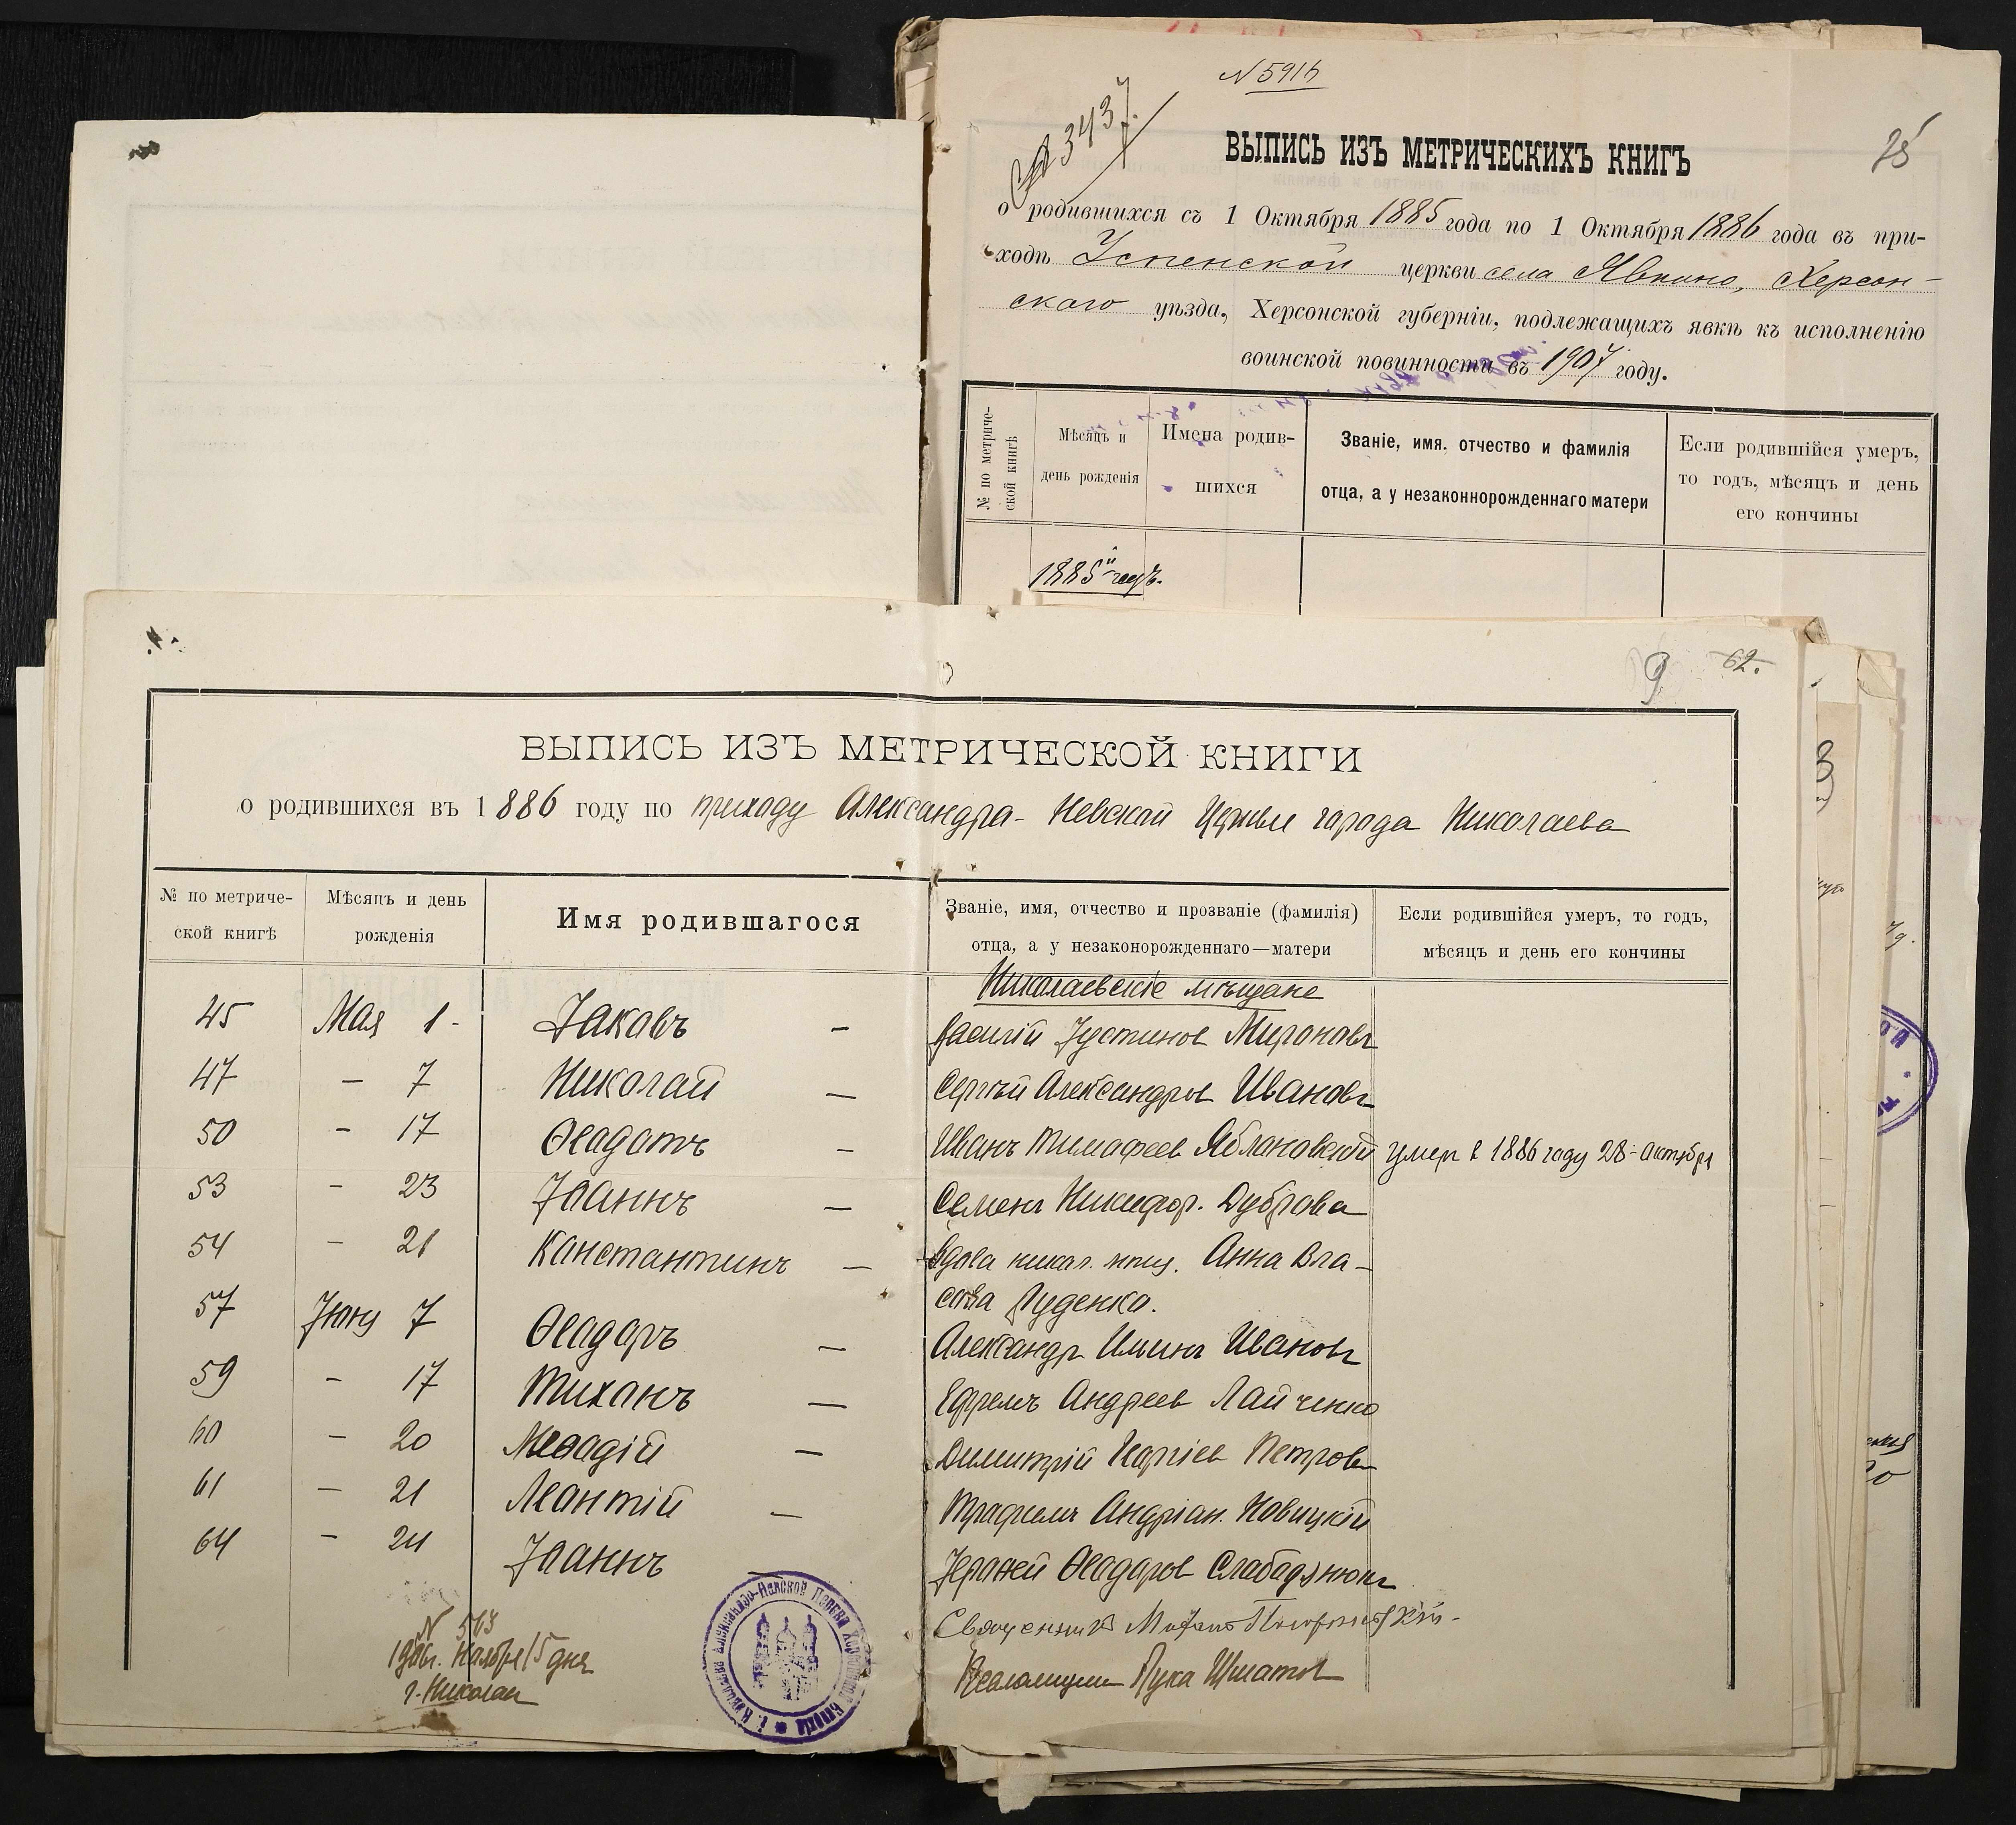 N 5916
3437.
75
ВЫПИСЬ ИЗЪ МЕТРИЧЕСКИХЪ КНИГЪ
о родившихся съ 1 Октября 1885 года по 1 Октября 1886 года въ при-
ходѣ Успенской церкви села Явкино, Херсон-
скаго уѣзда, Херсонской губерніи, подлежащихъ явкѣ къ исполненію
воинской повинности въ 1907 году.
№ по метриче-
ской книгѣ
Мѣсяцъ и
день рожденія
Имена родив-
шихся
Званіе, имя, отчество и фамилія
отца, а у незаконнорожденнаго матери
Если родившійся умеръ,
то годъ, мѣсяцъ и день
его кончины
1885й годъ.
9 62.
ВЫПИСЬ ИЗЪ МЕТРИЧЕСКОЙ КНИГИ
о родившихся въ 1886 году по приходу Александра-Невской Церкви города Николаева
№ по метриче-
ской книгѣ
Мѣсяцъ и день
рожденія
Имя родившагося
Званіе, имя, отчество и прозваніе (фамилія)
отца, а у незаконорожденнаго—матери
Если родившійся умеръ, то годъ,
мѣсяцъ и день его кончины
Николаевскіе мѣщане
45 Мая 1 - Іаковъ — Василій Іустинов Мироновъ
47 — 7 Николай — Сергѣй Александров Ивановъ
50 — 17 Ѳеодотъ — Иванъ Тимофеев Яблоновскій умер в 1886 году 28 октября
53 — 23 Іоаннъ — Семенъ Никифор. Дуброва
54 — 21 Константинъ — вдова никол. мѣщ. Анна Вла-
сова Руденко.
57 Іюня 7 Ѳеодоръ — Александр Ильинъ Ивановъ
59 — 17 Тихонъ — Ефремъ Андреев Лайченко
60 — 20 Меѳодій — Димитрій Георгіев Петровъ
61 — 21 Леонтій — Трофимъ Андріан. Новицкій
64 — 24 Іоаннъ — Іероѳей Ѳеодоров Слабодзнюкъ
Священникъ
Псаломщикъ Лука Шматов
N 513
1906г. Ноября 15 дня
г. Николаев
г. Николаева Александро-Невской Церкви Херсонской Епархіи